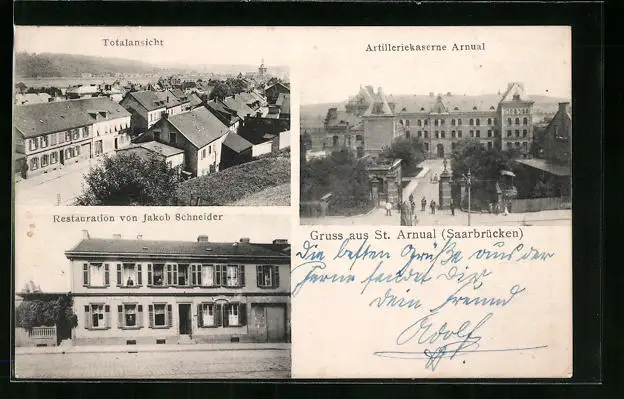 Totalansicht
Artilleriekaserne Arnual
Restauration von Jakob Schneider
Gruss aus St. Arnual (Saarbrücken)
Die besten Grüße aus der
Ferne sendet Dir
Dein Freund
Adolf